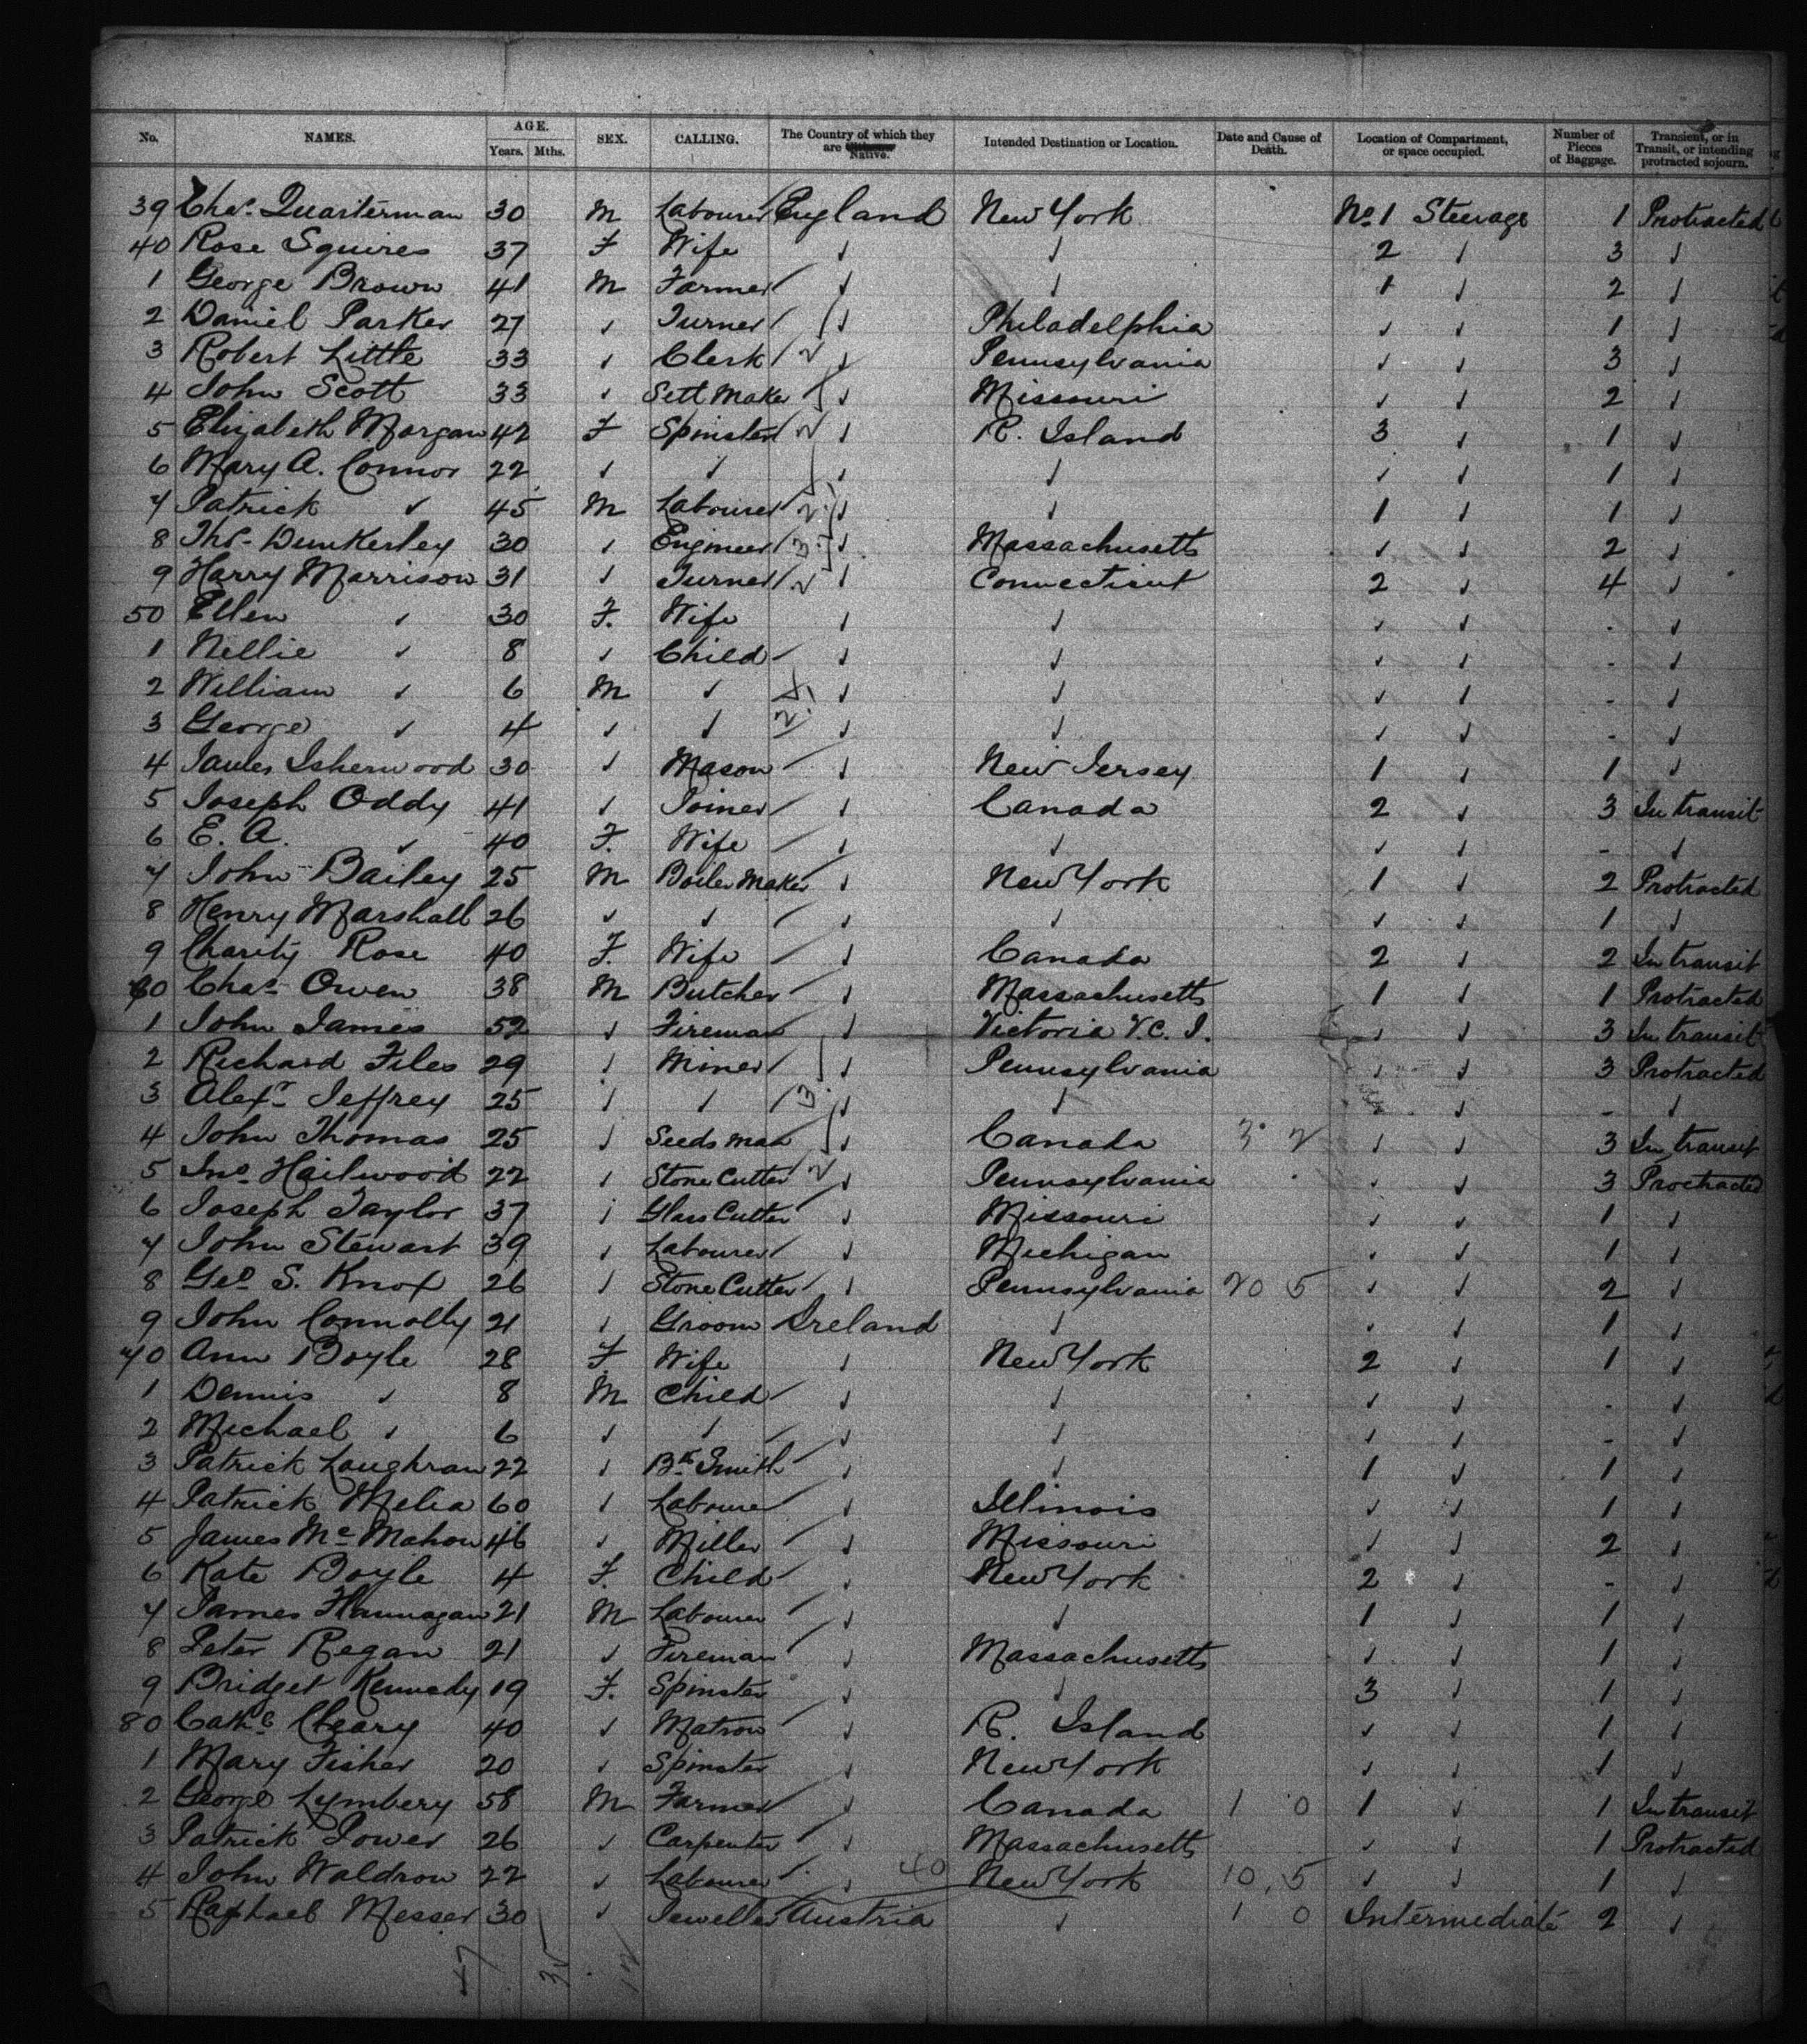 No. NAMES. AGE. Years. Mths. SEX. CALLING. The Country of which they are Native. Intended Destination or Location. Date and Cause of Death. Location of Compartment, or space occupied. Number of Pieces of Baggage. Transient, or in Transit, or intending protracted sojourn.
39 Chas. Quarterman 30 M Labourer England New York No. 1 Steerage 1 Protracted
40 Rose Squires 37 F Wife ✓ ✓ 2 ✓ 3 ✓
1 George Brown 41 M Farmer ✓ ✓ 1 ✓ 2 ✓
2 Daniel Parker 27 ✓ Turner ✓ Philadelphia ✓ ✓ 1 ✓
3 Robert Little 33 ✓ Clerk ✓ Pennsylvania ✓ ✓ 3 ✓
4 John Scott 33 ✓ Sett Maker ✓ Missouri ✓ ✓ 2 ✓
5 Elizabeth Morgan 42 F Spinster ✓ R. Island 3 ✓ 1 ✓
6 Mary A. Connor 22 ✓ ✓ ✓ ✓ ✓ ✓ 1 ✓
7 Patrick ✓ 45 M Labourer ✓ ✓ 1 ✓ 1 ✓
8 Thos. Dunkerley 30 ✓ Engineer ✓ Massachusetts ✓ ✓ 2 ✓
9 Harry Morrison 31 ✓ Turner ✓ Connecticut 2 ✓ 4 ✓
50 Ellen ✓ 30 F. Wife ✓ ✓ ✓ ✓ - ✓
1 Nellie ✓ 8 ✓ Child ✓ ✓ ✓ ✓ - ✓
2 William ✓ 6 M ✓ ✓ ✓ ✓ ✓ - ✓
3 George ✓ 4 ✓ ✓ ✓ ✓ ✓ ✓ - ✓
4 James Isherwood 30 ✓ Mason ✓ New Jersey 1 ✓ 1 ✓
5 Joseph Oddy 41 ✓ Joiner ✓ Canada 2 ✓ 3 In transit
6 E. A. ✓ 40 F. Wife ✓ ✓ ✓ ✓ - ✓
7 John Bailey 25 M Boiler Maker ✓ New York 1 ✓ 2 Protracted
8 Henry Marshall 26 ✓ ✓ ✓ ✓ ✓ ✓ 1 ✓
9 Charity Rose 40 F. Wife ✓ Canada 2 ✓ 2 In transit
60 Chas. Owen 38 M Butcher ✓ Massachusetts 1 ✓ 1 Protracted
1 John James 52 ✓ Fireman ✓ Victoria V.C.I. ✓ ✓ 3 In transit
2 Richard Files 29 ✓ Miner ✓ Pennsylvania ✓ ✓ 3 Protracted
3 Alexr. Jeffrey 25 ✓ ✓ ✓ ✓ ✓ - ✓
4 John Thomas 25 ✓ Seedsman ✓ Canada 3 2 ✓ ✓ 3 In transit
5 Jno. Hailwood 22 ✓ Stone Cutter ✓ Pennsylvania ✓ ✓ 3 Protracted
6 Joseph Taylor 37 ✓ Glass Cutter ✓ Missouri ✓ ✓ 1 ✓
7 John Stewart 39 ✓ Labourer ✓ Michigan ✓ ✓ 1 ✓
8 Geo. S. Knox 26 ✓ Stone Cutter ✓ Pennsylvania 20 5 ✓ ✓ 2 ✓
9 John Connolly 21 ✓ Groom Ireland ✓ ✓ ✓ 1 ✓
70 Ann Boyle 28 F Wife ✓ New York 2 ✓ 1 ✓
1 Dennis ✓ 8 M Child ✓ ✓ ✓ ✓ - ✓
2 Michael ✓ 6 ✓ ✓ ✓ ✓ ✓ ✓ - ✓
3 Patrick Loughran 22 ✓ Bk. Smith ✓ ✓ 1 ✓ 1 ✓
4 Patrick Melia 60 ✓ Labourer ✓ Illinois ✓ ✓ 1 ✓
5 James McMahon 46 ✓ Miller ✓ Missouri ✓ ✓ 2 ✓
6 Kate Boyle 4 F. Child ✓ New York 2 ✓ - ✓
7 James Flannagan 21 M Labourer ✓ ✓ 1 ✓ 1 ✓
8 Peter Regan 21 ✓ Fireman ✓ Massachusetts ✓ ✓ 1 ✓
9 Bridget Kennedy 19 F. Spinster ✓ ✓ 3 ✓ 1 ✓
80 Cathe Cleary 40 ✓ Matron ✓ R. Island ✓ ✓ 1 ✓
1 Mary Fisher 20 ✓ Spinster ✓ New York ✓ ✓ 1 ✓
2 George Lymbery 58 M Farmer ✓ Canada 1 0 1 ✓ 1 In transit
3 Patrick Power 26 ✓ Carpenter ✓ Massachusetts ✓ ✓ 1 Protracted
4 John Waldron 22 ✓ Labourer ✓ 40 New York 10,5 ✓ ✓ 1 ✓
5 Raphael Messer 30 ✓ Jeweller Austria ✓ 1 0 Intermediate 2 ✓
47 35 12